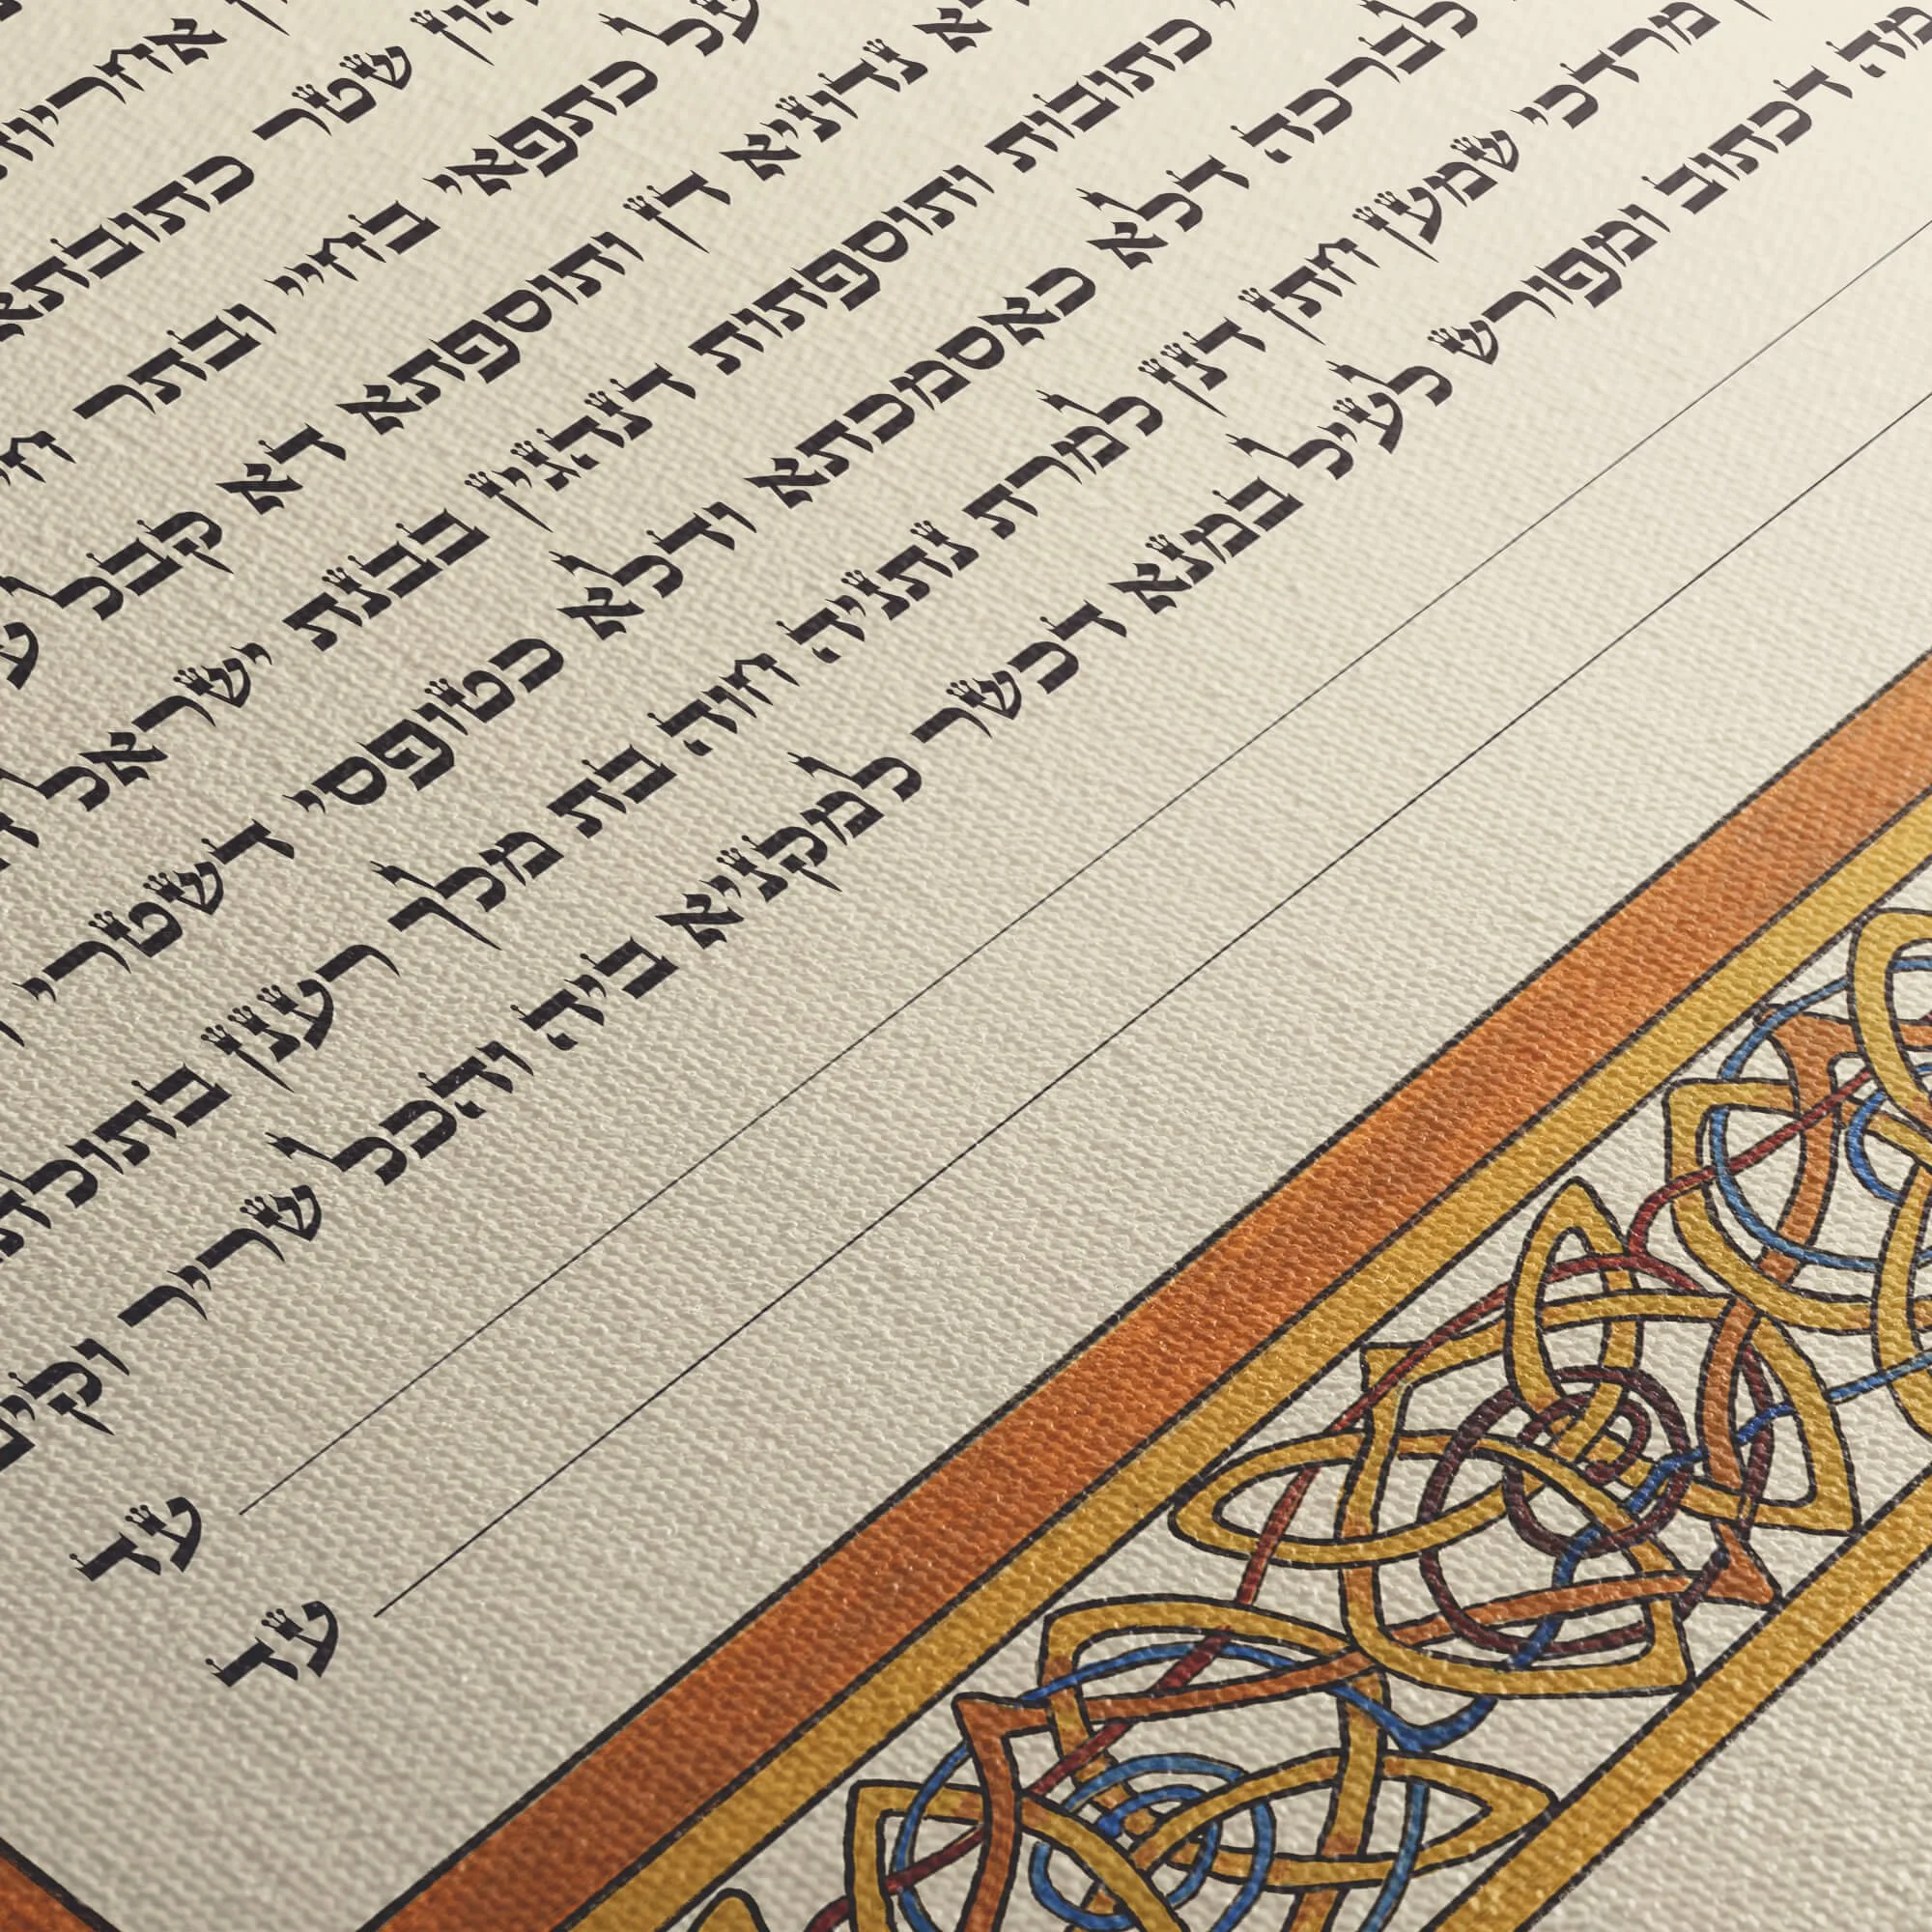 אחריו
שטר כתובתא
על כתפאי בחיי ובתר
א נדוניא דין ותוספתא דא קבל
כתובות ותוספתות דנהגין בבנת ישראל
לברכה דלא כאסמכתא ודלא כטופסי דשטרי
מרדכי שמעון חתן דנן למרת נתניה חוה בת מלך רענן בתולת
מה דכתוב ומפורש לעיל במנא דכשר למקניא ביה והכל שריר וקים
עד
עד